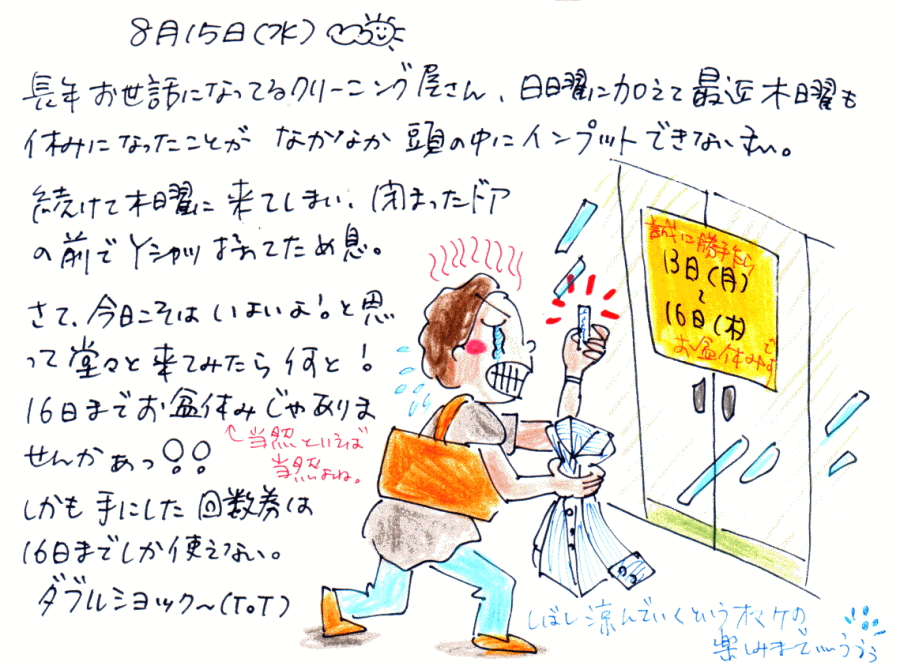 8月15日(水)
長年お世話になってるクリーニング屋さん、日曜に加えて最近木曜も
休みになったことが なかなか頭の中にインプットできない私。
続けて木曜に来てしまい、閉まったドア
の前でYシャツ抱えてため息。
さて、今日こそはいよいよ!と思
って堂々と来てみたら何と!
16日までお盆休みじゃありま
せんかぁっ!!
↑当然といえば
当然だよね。
しかも手にした回数券は
16日までしか使えない。
ダブルショック〜(ToT)
誠に勝手ながら
13日(月)
〜
16日(木)
お盆休みです
しばし涼んでいくというオマケの
楽しみまで…ううぅ